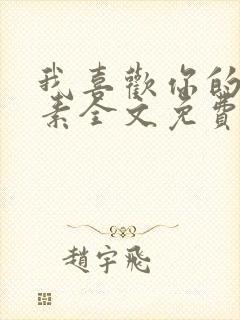 我喜歡你的
素全文免費
趙宇飛